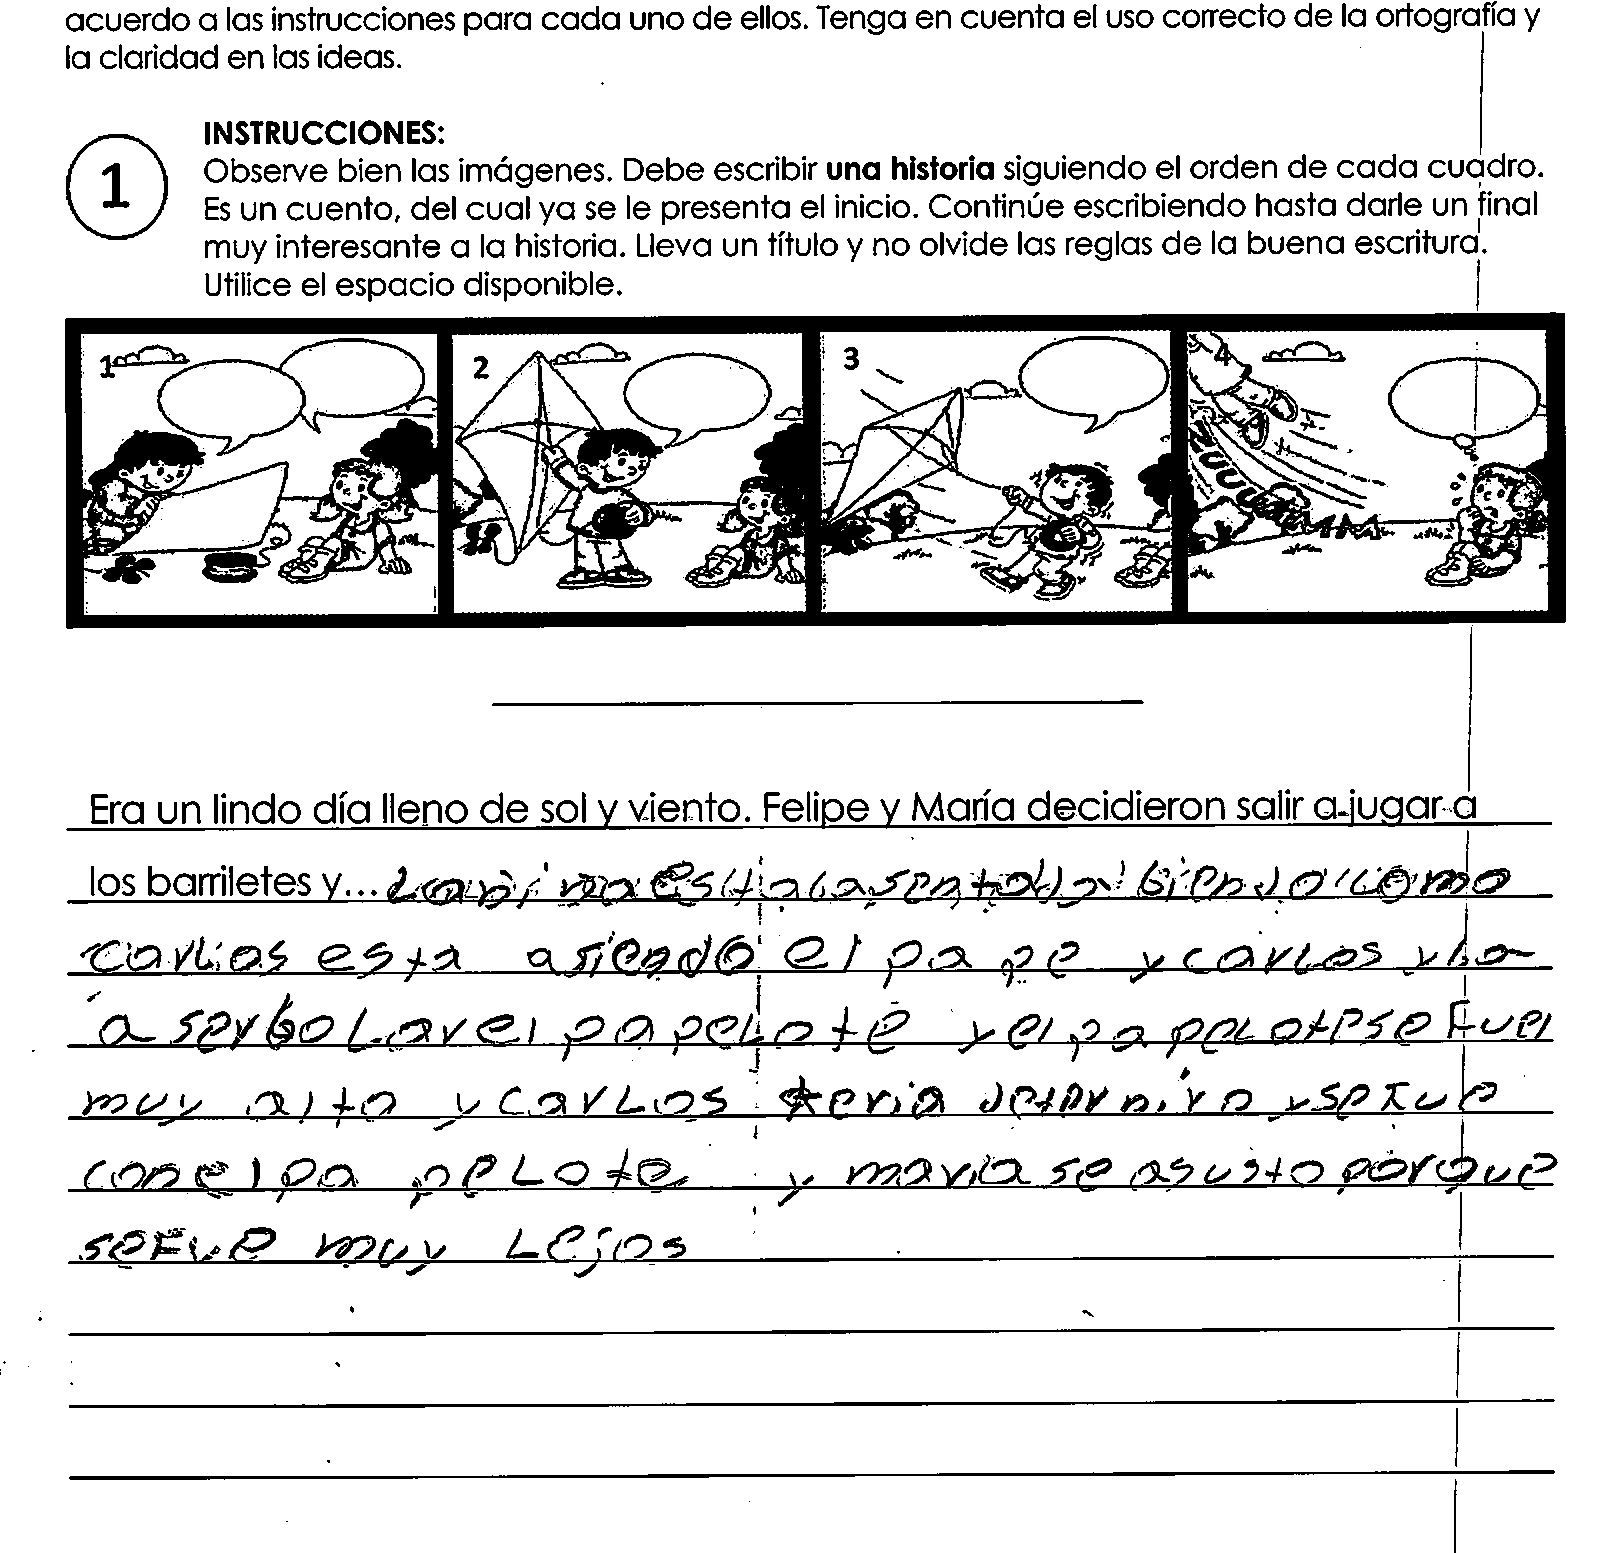 acuerdo a las instrucciones para cada uno de ellos. Tenga en cuenta el uso correcto de la ortografía y
la claridad en las ideas.
1
INSTRUCCIONES:
Observe bien las imágenes. Debe escribir una historia siguiendo el orden de cada cuadro.
Es un cuento, del cual ya se le presenta el inicio. Continúe escribiendo hasta darle un final
muy interesante a la historia. Lleva un título y no olvide las reglas de la buena escritura.
Utilice el espacio disponible.
1 2 3 4
ZUUUUMMM
Era un lindo día lleno de sol y viento. Felipe y María decidieron salir a jugar a
los barriletes y... La nina estaba sentada biendo como
carlos esta asiendo el pa pe y carlos
a ser bolar el papelote y el papelote se fue
muy alto y carlos y se fue
con el pa pelote y maria se asusto porque
se fue muy Lejos